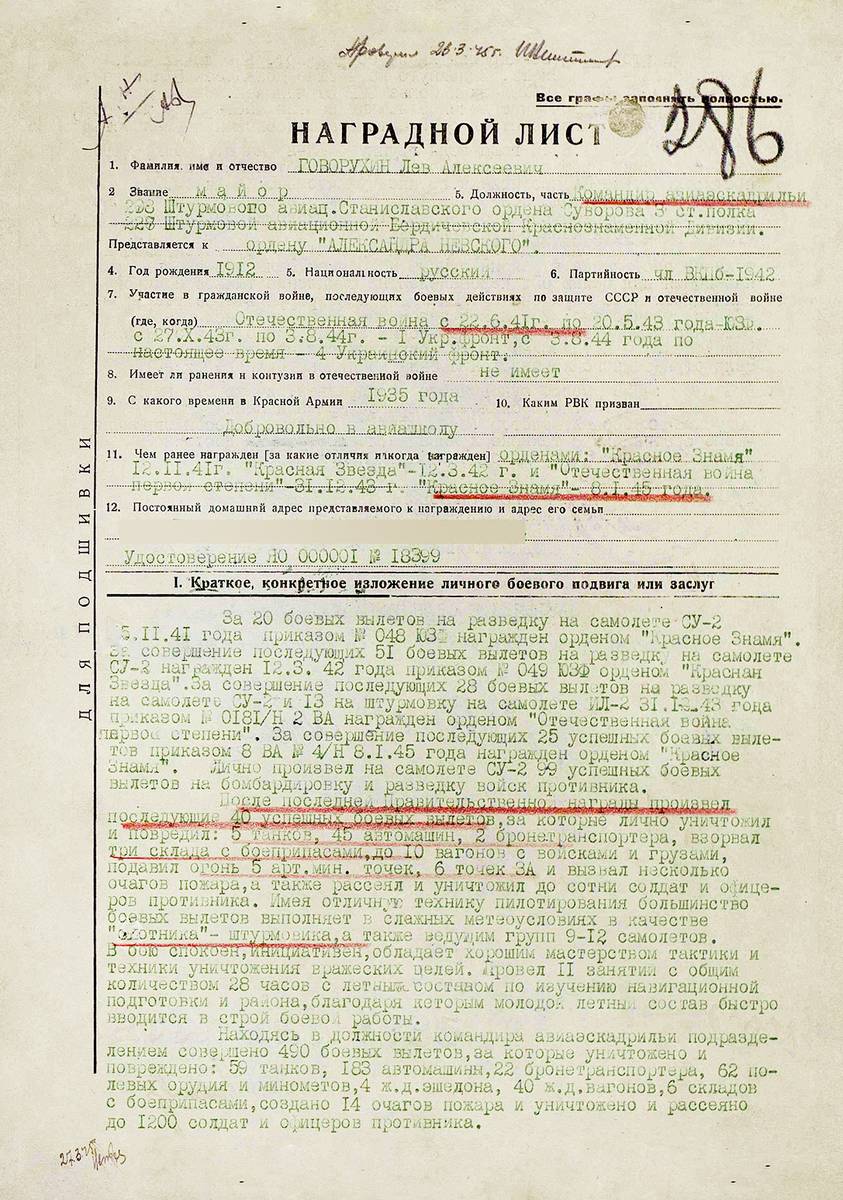 23.3.45г.
Все графы заполнять полностью.
286
НАГРАДНОЙ ЛИСТ
1. Фамилия, имя и отчество ГОВОРУХИН Лев Алексеевич
2 Звание майор 5. Должность, часть Командир авиаэскадрильи
Штурмового авиац.Станиславского ордена Суворова 3 ст.полка
Штурмовой авиационной Бердичевской Краснознаменной дивизии.
Представляется к ордену "АЛЕКСАНДРА НЕВСКОГО".
4. Год рождения 1912 5. Национальность русский 6. Партийность чл ВКПб-1942
7. Участие в гражданской войне, последующих боевых действиях по защите СССР и отечественной войне
(где, когда) Отечественная война с 22.6.41г. по 20.5.43 года-ЮЗФ.
с 27.X.43г. по 3.8.44г. - I Укр.фронт,с 3.8.44 года по
настоящее время - 4 Украинский фронт.
8. Имеет ли ранения и контузии в отечественной войне не имеет
9. С какого времени в Красной Армии 1935 года 10. Каким РВК призван
Добровольно в авиашколу
11. Чем ранее награжден [за какие отличия и когда награжден] орденами: "Красное Знамя"
12.II.41г. "Красная Звезда"-12.3.42 г. и "Отечественная война
первой степени"-31.12.43 г. "Красное Знамя"- 8.I.45 года.
12. Постоянный домашний адрес представляемого к награждению и адрес его семьи
Удостоверение ЛО 000001 № 18399
I. Краткое, конкретное изложение личного боевого подвига или заслуг
За 20 боевых вылетов на разведку на самолете СУ-2
.II.41 года приказом № 048 ЮЗФ награжден орденом "Красное Знамя".
За совершение последующих 51 боевых вылетов на разведку на самолете
СУ-2 награжден 12.3. 42 года приказом № 049 ЮЗФ орденом "Красная
Звезда".За совершение последующих 28 боевых вылетов на разведку
на самолете СУ-2 и 13 на штурмовку на самолете ИЛ-2 31. .43 года
приказом № 0181/Н 2 ВА награжден орденом "Отечественная война
первой степени". За совершение последующих 25 успешных боевых выле-
тов приказом 8 ВА № 4/Н 8.I.45 года награжден орденом "Красное
Знамя". Лично произвел на самолете СУ-2 99 успешных боевых
вылетов на бомбардировку и разведку войск противника.
После последней правительственно награды произвел
последующие 40 успешных боевых вылетов,за которые лично уничтожил
и повредил: 5 танков, 45 автомашин, 2 бронетранспортера, взорвал
три склада с боеприпасами,до 10 вагонов с войсками и грузами,
подавил огонь 5 арт.мин. точек, 6 точек ЗА и вызвал несколько
очагов пожара,а также рассеял и уничтожил до сотни солдат и офице-
ров противника. Имея отличную технику пилотирования большинство
боевых вылетов выполняет в сложных метеоусловиях в качестве
"охотника"- штурмовика,а также ведущим групп 9-12 самолетов.
В бою спокоен,инициативен,обладает хорошим мастерством тактики и
техники уничтожения вражеских целей. Провел II занятий с общим
количеством 28 часов с летным составом по изучению навигационной
подготовки и района,благодаря которым молодой летный состав быстро
вводится в строй боевой работы.
Находясь в должности командира авиаэскадрильи подразде-
лением совершено 490 боевых вылетов,за которые уничтожено и
повреждено: 59 танков, 183 автомашины,22 бронетранспортера, 62 по-
левых орудия и минометов,4 ж.д.эшелона, 40 ж.д.вагонов,6 складов
с боеприпасами,создано 14 очагов пожара и уничтожено и рассеяно
до 1200 солдат и офицеров противника.
27.3.45
ДЛЯ ПОДШИВКИ